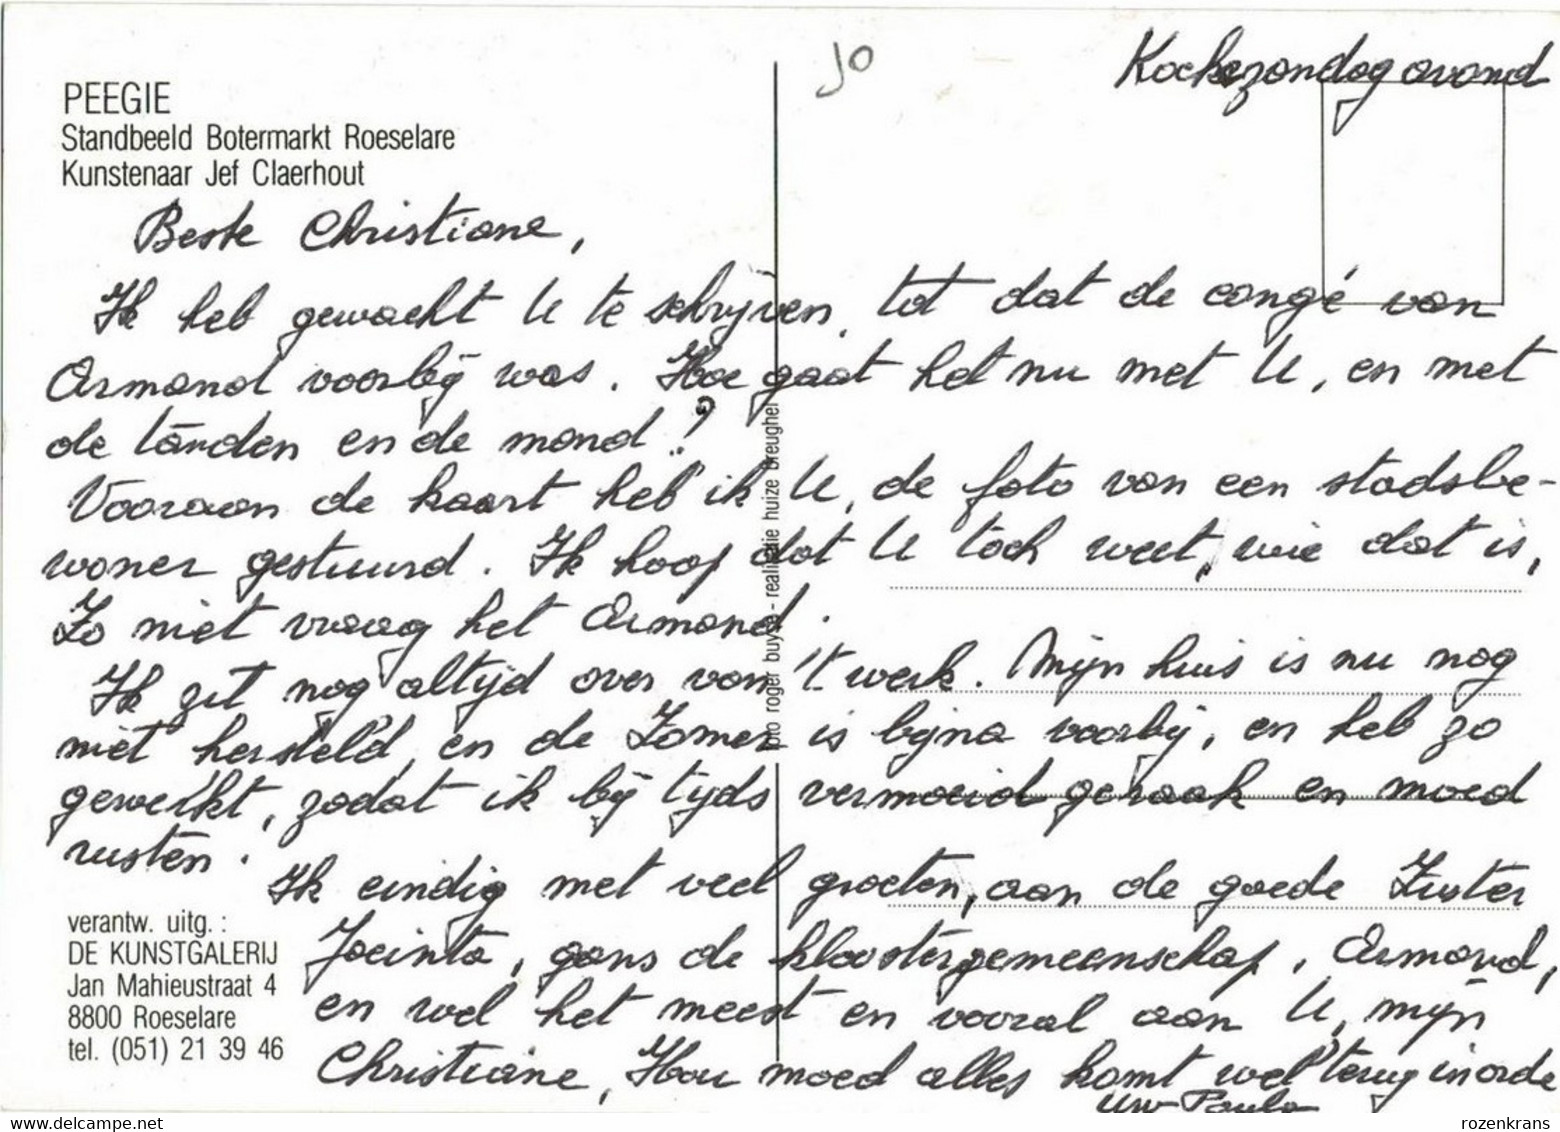 Jo
Koekezondag avond
PEEGIE
Standbeeld Botermarkt Roeselare
Kunstenaar Jef Claerhout
Beste Christiane,
Ik heb gewacht U te schrijven, tot dat de congé van
Armand voorbij was. Hoe gaat het nu met U, en met
de tanden en de mond?
Vooraan de kaart heb ik U, de foto van een stadsbe-
woner gestuurd. Ik hoop dat U toch weet, wie dat is,
Zo niet vraag het Armand.
Ik zit nog altijd over van 't werk. Mijn huis is nu nog
niet hersteld, en de Zomer is bijna voorbij, en heb zo
gewerkt, zodat ik bij tijds vermoeid geraak en moed
rusten.
Ik eindig met veel groeten, aan de goede Zuster
Jacinta, gans de kloostergemeenschap, Armand,
en wel het meest en vooral aan U, mijn
Christiane, Hou moed alles komt wel terug in orde
Uw Paula
verantw. uitg. :
DE KUNSTGALERIJ
Jan Mahieustraat 4
8800 Roeselare
tel. (051) 21 39 46
foto roger buyse - realisatie huize breughel
rozenkrans
delcampe.net